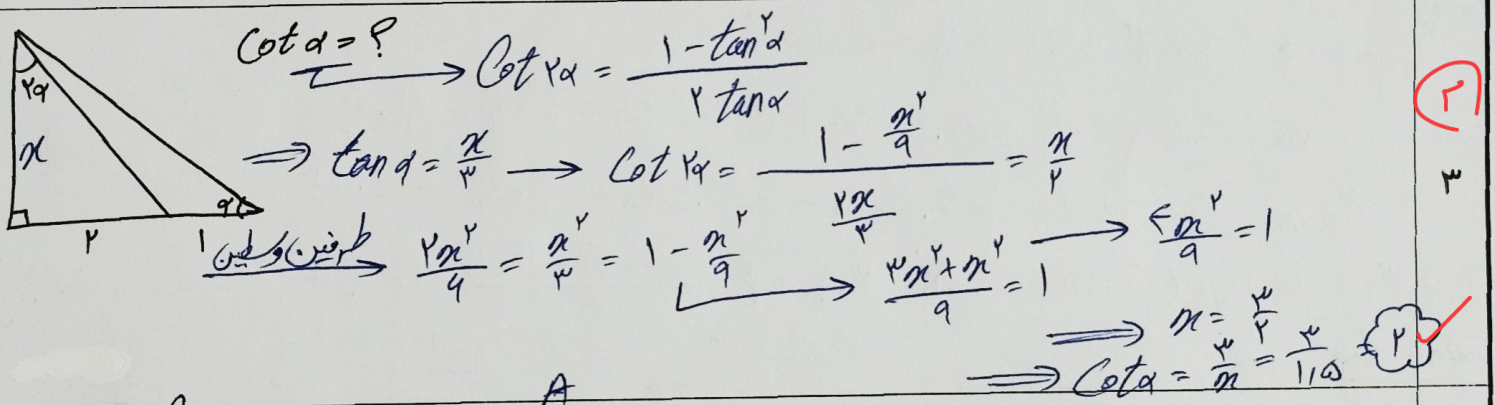 Cot α = ?
Cot ۲α = (۱ - tan^۲ α) / (۲ tan α)
۲α
x
۲ ۱ α
⇒ tan α = x/۳ → Cot ۲α = (۱ - x^۲/۹) / (۲x/۳) = x/۲
طرفین وسطین → ۲x^۲/۶ = x^۲/۳ = ۱ - x^۲/۹ → (۳x^۲ + x^۲)/۹ = ۱ → ۴x^۲/۹ = ۱
⇒ x = ۳/۲
⇒ Cot α = ۳/x = ۳/۱,۵ = ۲
۲
۳
A